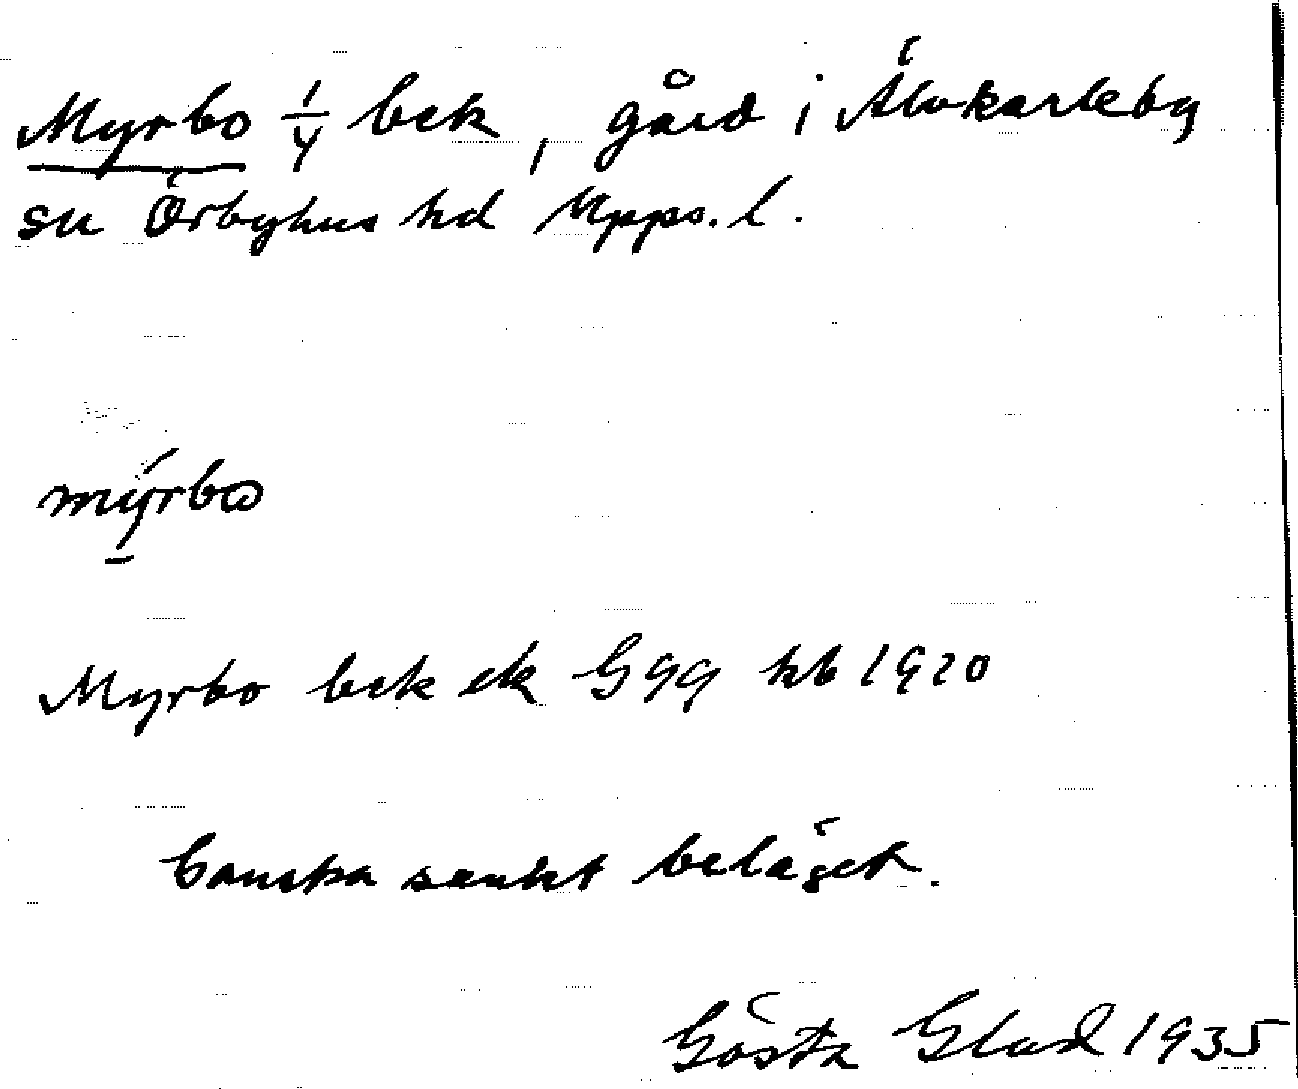 Myrbo 1/4 bek, gård i Älvkarleby
sn Örbyhus hd Upps. l.
mýrbω
Myrbo bek ek G99 kb 1920
Ganska sankt beläget.
Gösta Glad 1935